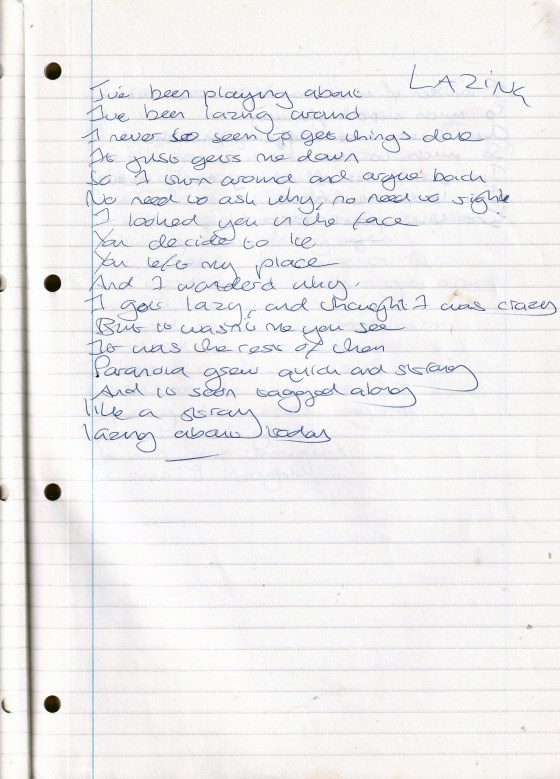 LAZING
I've been playing about
I've been lazing around
I never so seem to get things done
It just gets me down
So I turn around and argue back
No need to ask why, no need to fight
I looked you in the face
You decide to lie
You left my place
And I wonderd why.
I got lazy, and thought I was crazy
But it wasn't me you see
It was the rest of them
Paranoia grew quick and strong
And it soon tagged along
like a stray
lazing about today